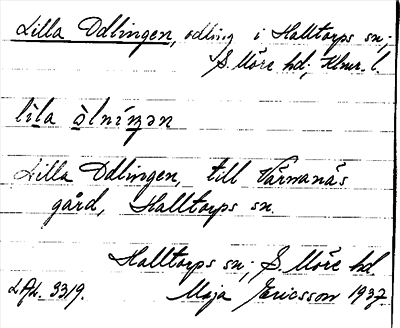 Lilla Odlingen, odling i Halltorps sn;
S. Möre hd; Klmr. l.
lila òlníŋən
Lilla Odlingen, till Värnanäs
gård, Halltorps sn.
Halltorps sn; S. Möre hd
Maja Ericsson 1937
LAL. 3319.